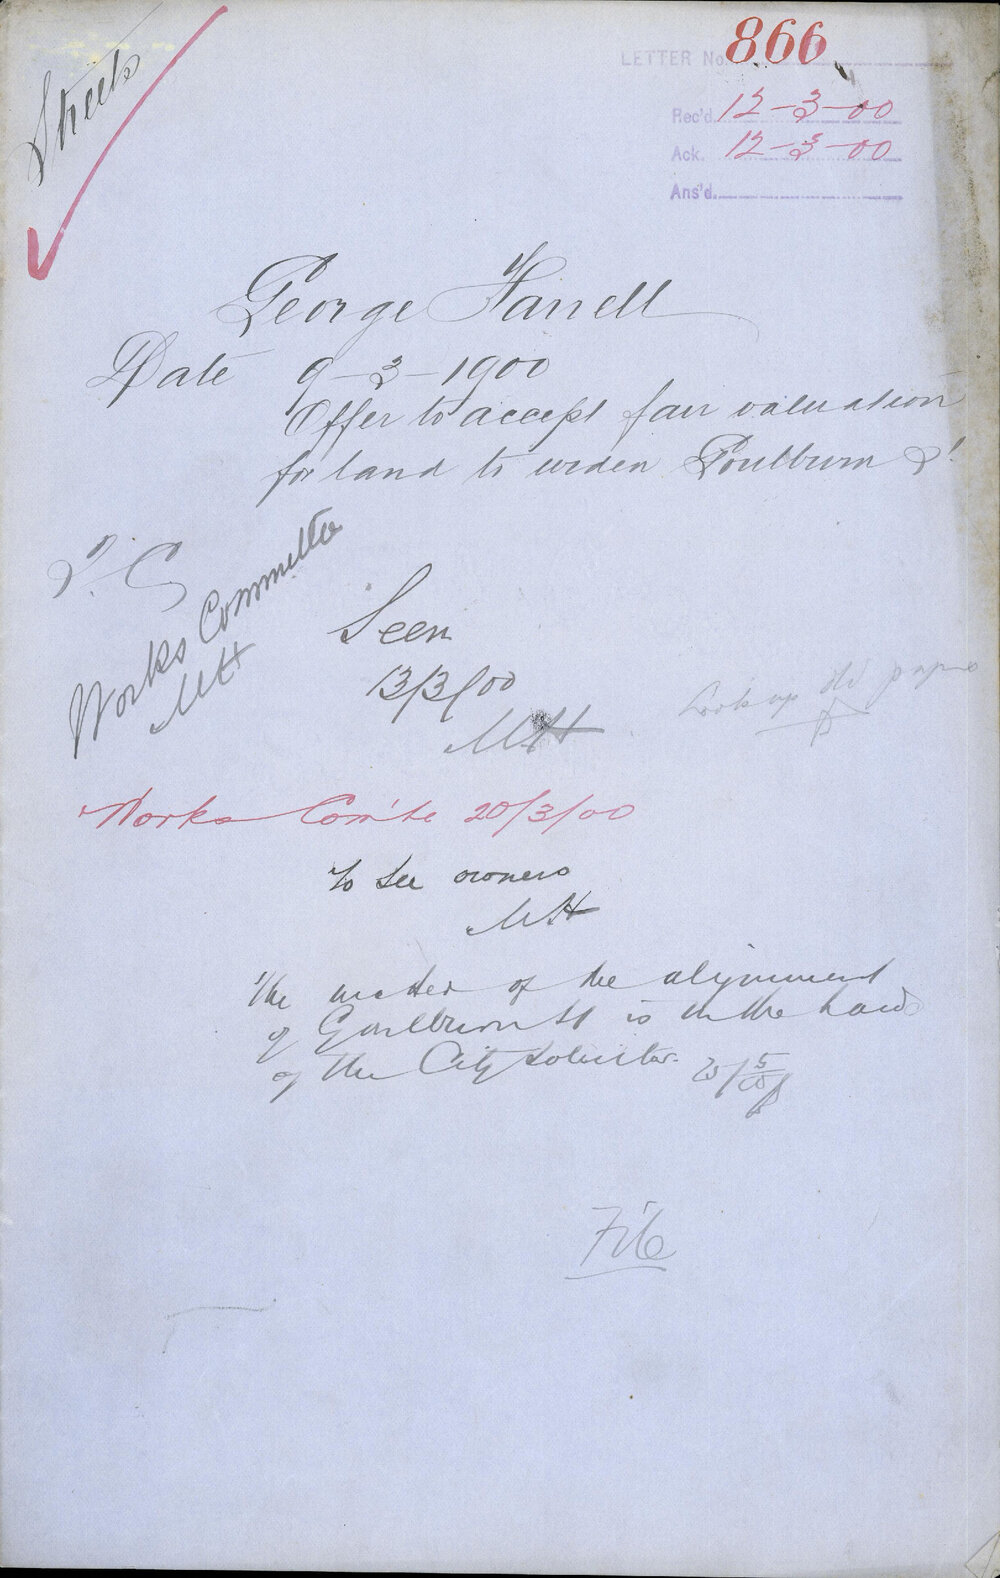 Streets
LETTER No. 866
Rec'd. 12-3-00
Ack. 12-3-00
Ans'd.
George Farrell
Date 9-3-1900
Offer to accept fair valuation
for land to widen Goulburn St
T. C
Works Committee
MH
Seen
13/3/00
MH
Look up old papers
Works Com'te 20/3/00
to see owners
MH
The matter of the alignment
of Goulburn St is in the hands
of the City Solicitor.
File